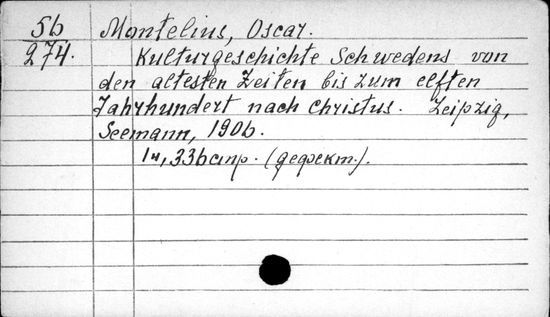 5b
274.
Montelius, Oscar.
Kulturgeschichte Schwedens von
den altesten Zeiten bis zum elften
Jahrhundert nach Christus. Leipzig,
Seemann, 1906.
336 стр. (дефект.).